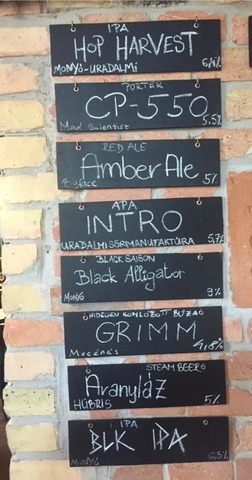 IPA
HOP HARVEST
MONYÓ-URADALMI
PORTER
CP-550
Mad Scientist 5,5%
RED ALE
Amber Ale
Bigface 5%
APA
INTRO
URADALMI SÖRMANUFAKTÚRA 5,7%
BLACK SAISON
Black Alligator
MONYÓ 9%
HIDEGEN KOMLÓZOTT BÚZA
GRIMM
Mecénás 4,8%
STEAM BEER
Aranyláz
HÜBRIS 5%
IPA
BLK IPA
MONYÓ 6,5%